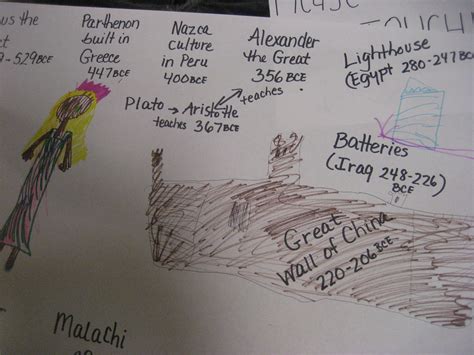 us the
529 BCE
Parthenon
built in
Greece
447 BCE
Nazca
culture
in Peru
400 BCE
Alexander
the Great
356 BCE
Lighthouse
(Egypt 280-247 BCE
Plato → Aristotle
teaches 367 BCE
teaches
Batteries
(Iraq 248-226)
BCE
Great
Wall of China
220-206 BCE
Malachi